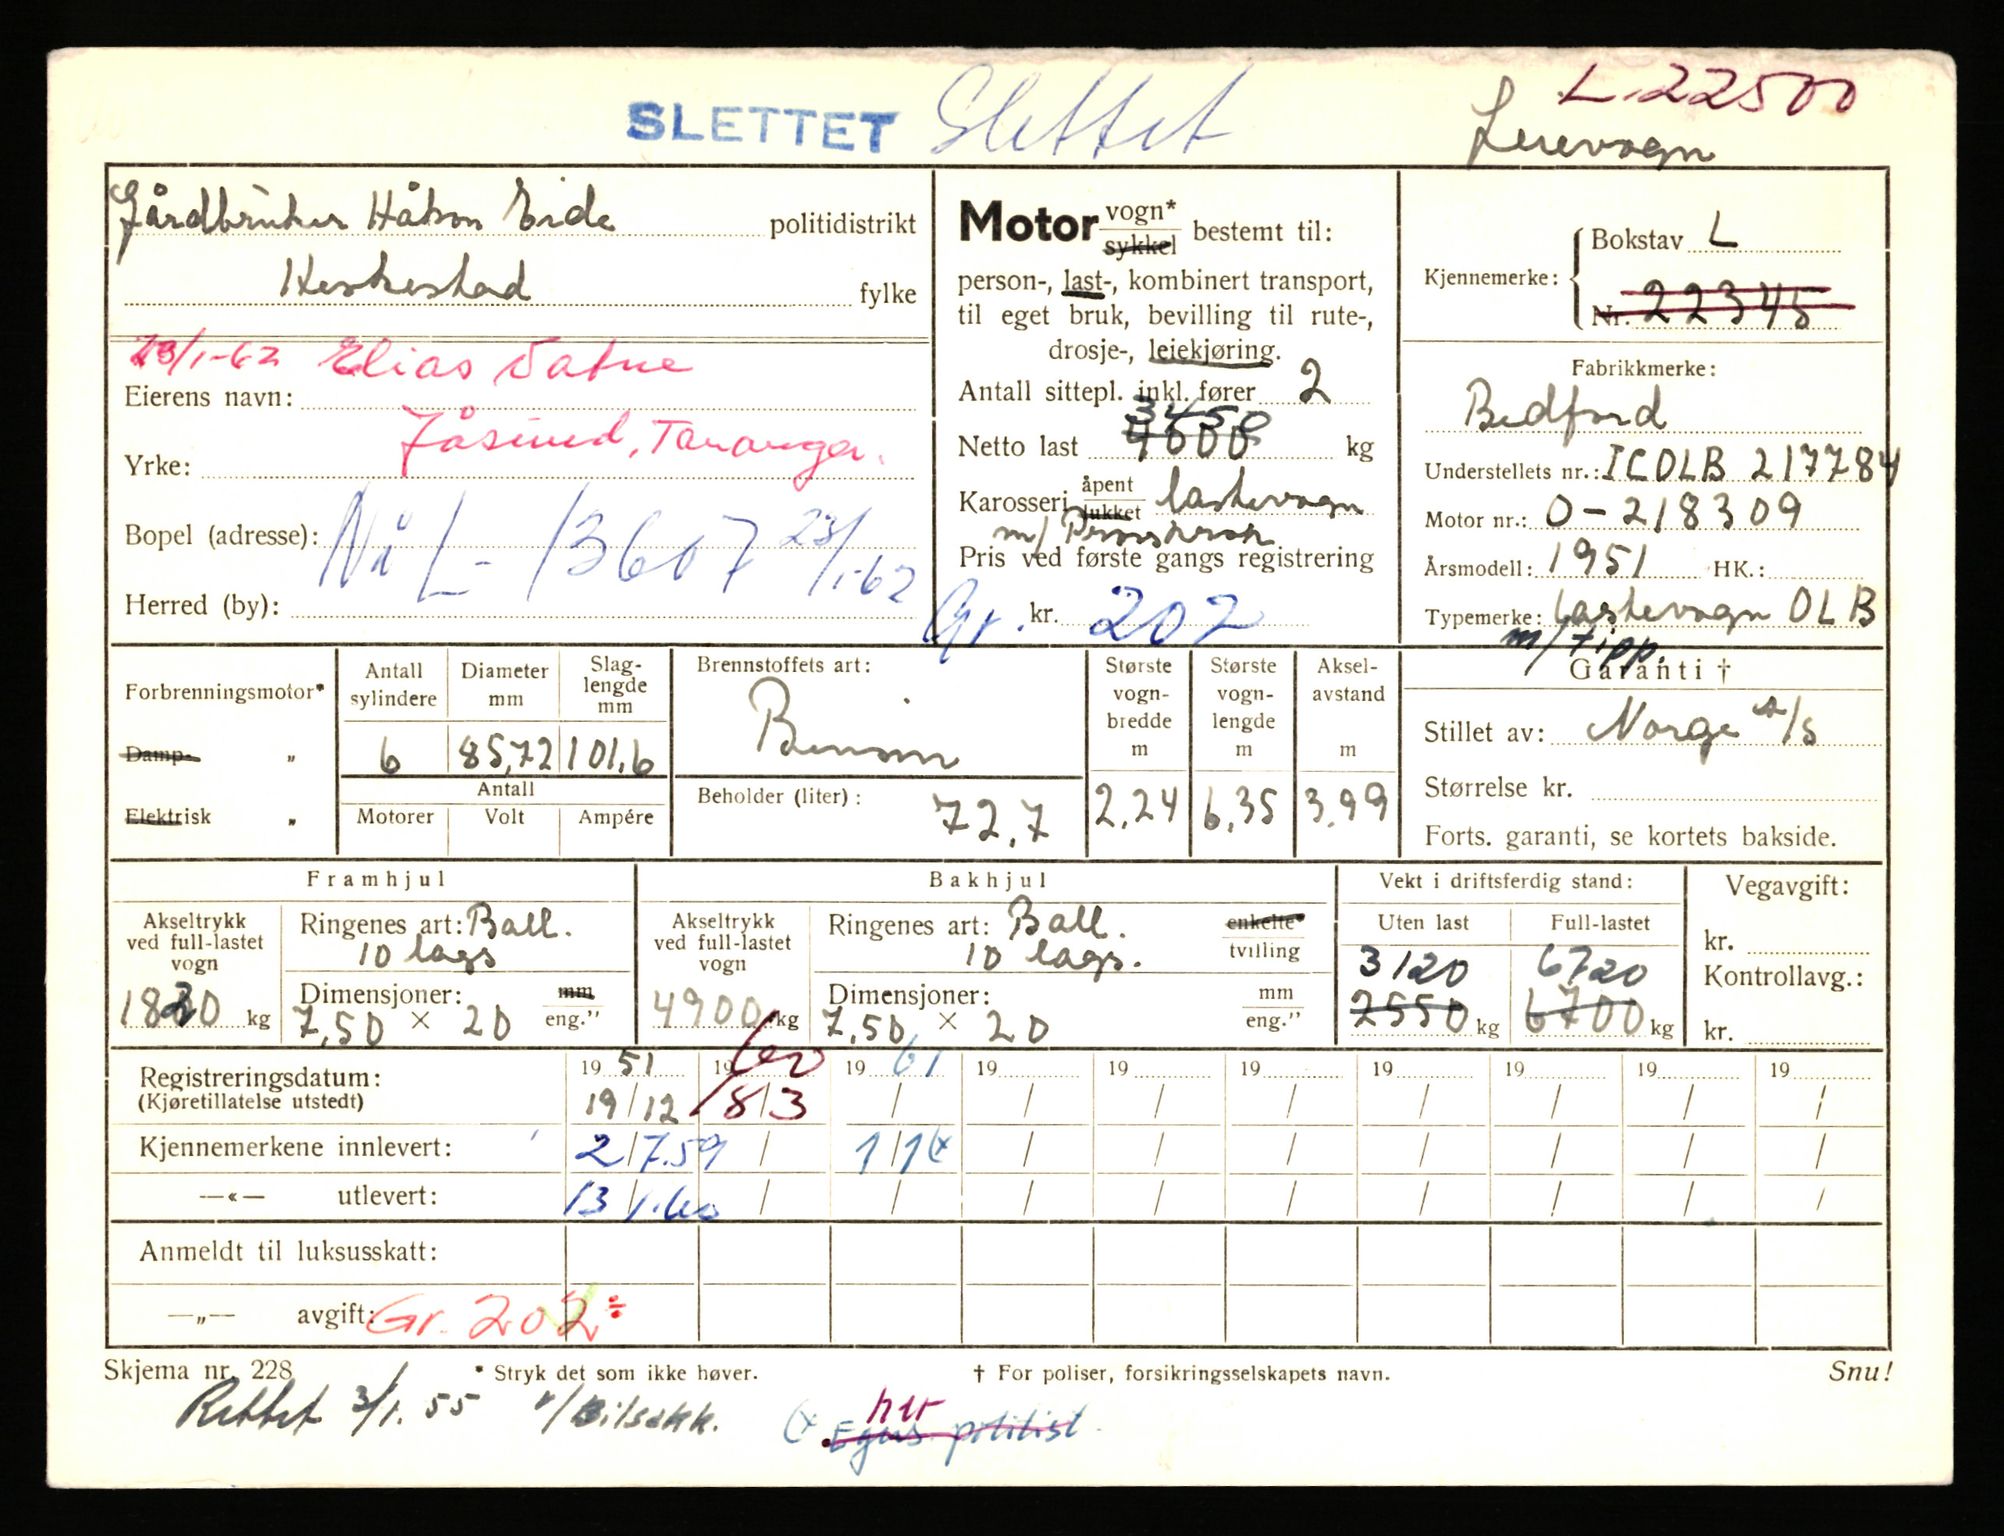 L-22500
SLETTET Slettet Leievogn
Gårdbruker Håkon Eide politidistrikt
Heskestad fylke
23/1-62 Elias Vatne
Eierens navn:
Jåsund, Tananger.
Yrke:
Bopel (adresse):
Nå L-13607 23/1-62
Herred (by):
Motor vogn* sykkel bestemt til:
person-, last-, kombinert transport,
til eget bruk, bevilling til rute-,
drosje-, leiekjøring.
Antall sittepl. inkl. fører 2
3450
Netto last 4000 kg
Karosseri åpent lukket lastevogn
m/
Pris ved første gangs registrering
Gr. kr. 202
Kjennemerke: Bokstav L
Nr. 22345
Fabrikkmerke:
Bedford
Understellets nr.: ICOLB 217784
Motor nr.: O-218309
Årsmodell: 1951 HK.:
Typemerke: lastevogn OLB
m/tipp.
Forbrenningsmotor*
Damp- "
Elektrisk "
Antall sylindere 6
Diameter mm 85,72
Slaglengde mm 101,6
Antall
Motorer Volt Ampére
Brennstoffets art:
Bensin
Beholder (liter): 72,7
Største vognbredde m 2,24
Største vognlengde m 6,35
Akselavstand m 3,99
Garanti †
Stillet av: Norge A/S
Størrelse kr.
Forts. garanti, se kortets bakside.
Framhjul
Akseltrykk ved full-lastet vogn 1820 kg
Ringenes art: Ball.
10 lags
Dimensjoner: mm eng."
7,50 × 20
Bakhjul
Akseltrykk ved full-lastet vogn 4900 kg
Ringenes art: Ball. enkelte* tvilling
10 lags.
Dimensjoner: mm eng."
7,50 × 20
Vekt i driftsferdig stand:
Uten last Full-lastet
3120 6720
2550 kg 6700 kg
Vegavgift:
kr.
Kontrollavg.:
kr.
Registreringsdatum: 1951 1960 1961 19 19 19 19 19 19 19
(Kjøretillatelse utstedt) 19/12 8/3 / / / / / / / /
Kjennemerkene innlevert: 2/7.59 / 1/1 (x / / / / / / /
—«— utlevert: 13/1.60 / / / / / / / / /
Anmeldt til luksusskatt:
—„— avgift: Gr. 202
Skjema nr. 228 * Stryk det som ikke høver. † For poliser, forsikringsselskapets navn. Snu!
Rettet 3/1.55 v/Bilsakk.
her
(x politist